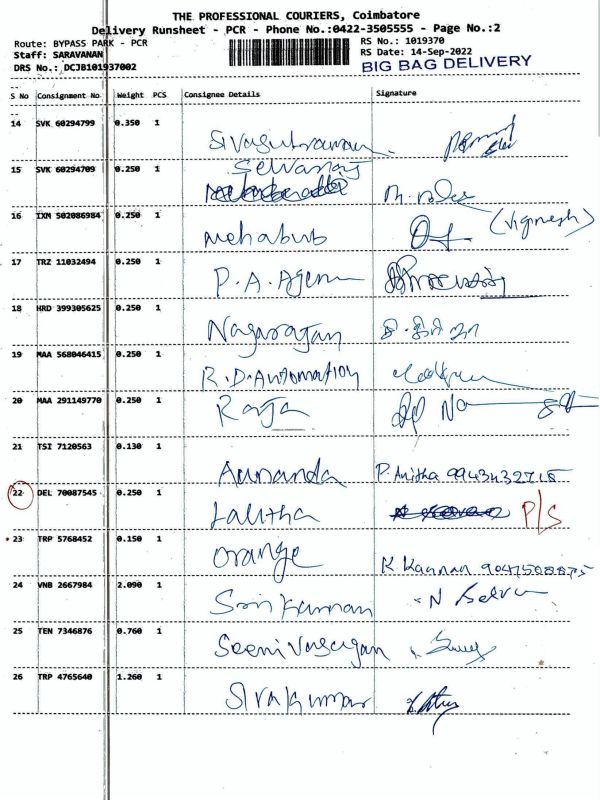 THE PROFESSIONAL COURIERS, Coimbatore
Delivery Runsheet - PCR - Phone No.:0422-3505555 - Page No.:2
Route: BYPASS PARK - PCR
Staff: SARAVANAN
DRS No.: DCJB101937002
RS No.: 1019370
RS Date: 14-Sep-2022
BIG BAG DELIVERY
S No Consignment No Weight PCS Consignee Details Signature
14 SVK 60294799 0.350 1 Sivasubraman
15 SVK 60294709 0.250 1 Selvaraj
16 IXM 502086984 0.250 1 Mehabub (Vignesh)
17 TRZ 11032494 0.250 1 P.A. Agen
18 HRD 399305625 0.250 1 Nagarajan
19 MAA 568046415 0.250 1 R.D. Automation
20 MAA 291149770 0.250 1 Raja
21 TSI 7120563 0.130 1 Aunanda P. Anitha 9943432715
22 DEL 70087545 0.250 1 Lalitha P/S
23 TRP 5768452 0.150 1 Orange K. Kannan 9047508875
24 VNB 2667984 2.090 1 Sri Kannan N Selva
25 TEN 7346876 0.760 1 Seenivasagan
26 TRP 4765640 1.260 1 Sivakumar